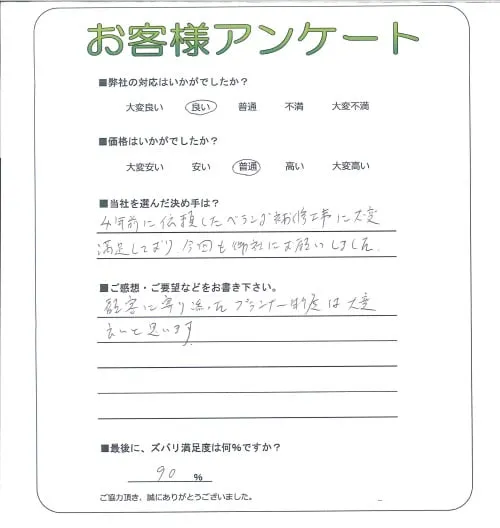 お客様アンケート
■弊社の対応はいかがでしたか？
大変良い 良い 普通 不満 大変不満
■価格はいかがでしたか？
大変安い 安い 普通 高い 大変高い
■当社を選んだ決め手は？
4年前に依頼したベランダ補修工事に大変
満足しており今回も御社にお願いしました.
■ご感想・ご要望などをお書き下さい。
顧客に寄り添ったプランナー制度は大変
良いと思います
■最後に、ズバリ満足度は何％ですか？
90 %
ご協力頂き、誠にありがとうございました。